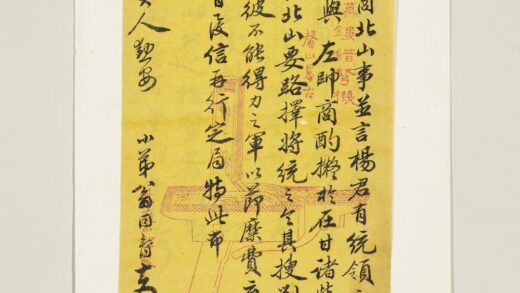 北山事並言楊君有統領
與左帥商酌擬於在甘諸
北山要路擇將統之令其搜剿
彼不能得力之軍以節糜費
日後信再行定局特此布
人勛安
小弟翁同爵
摹古